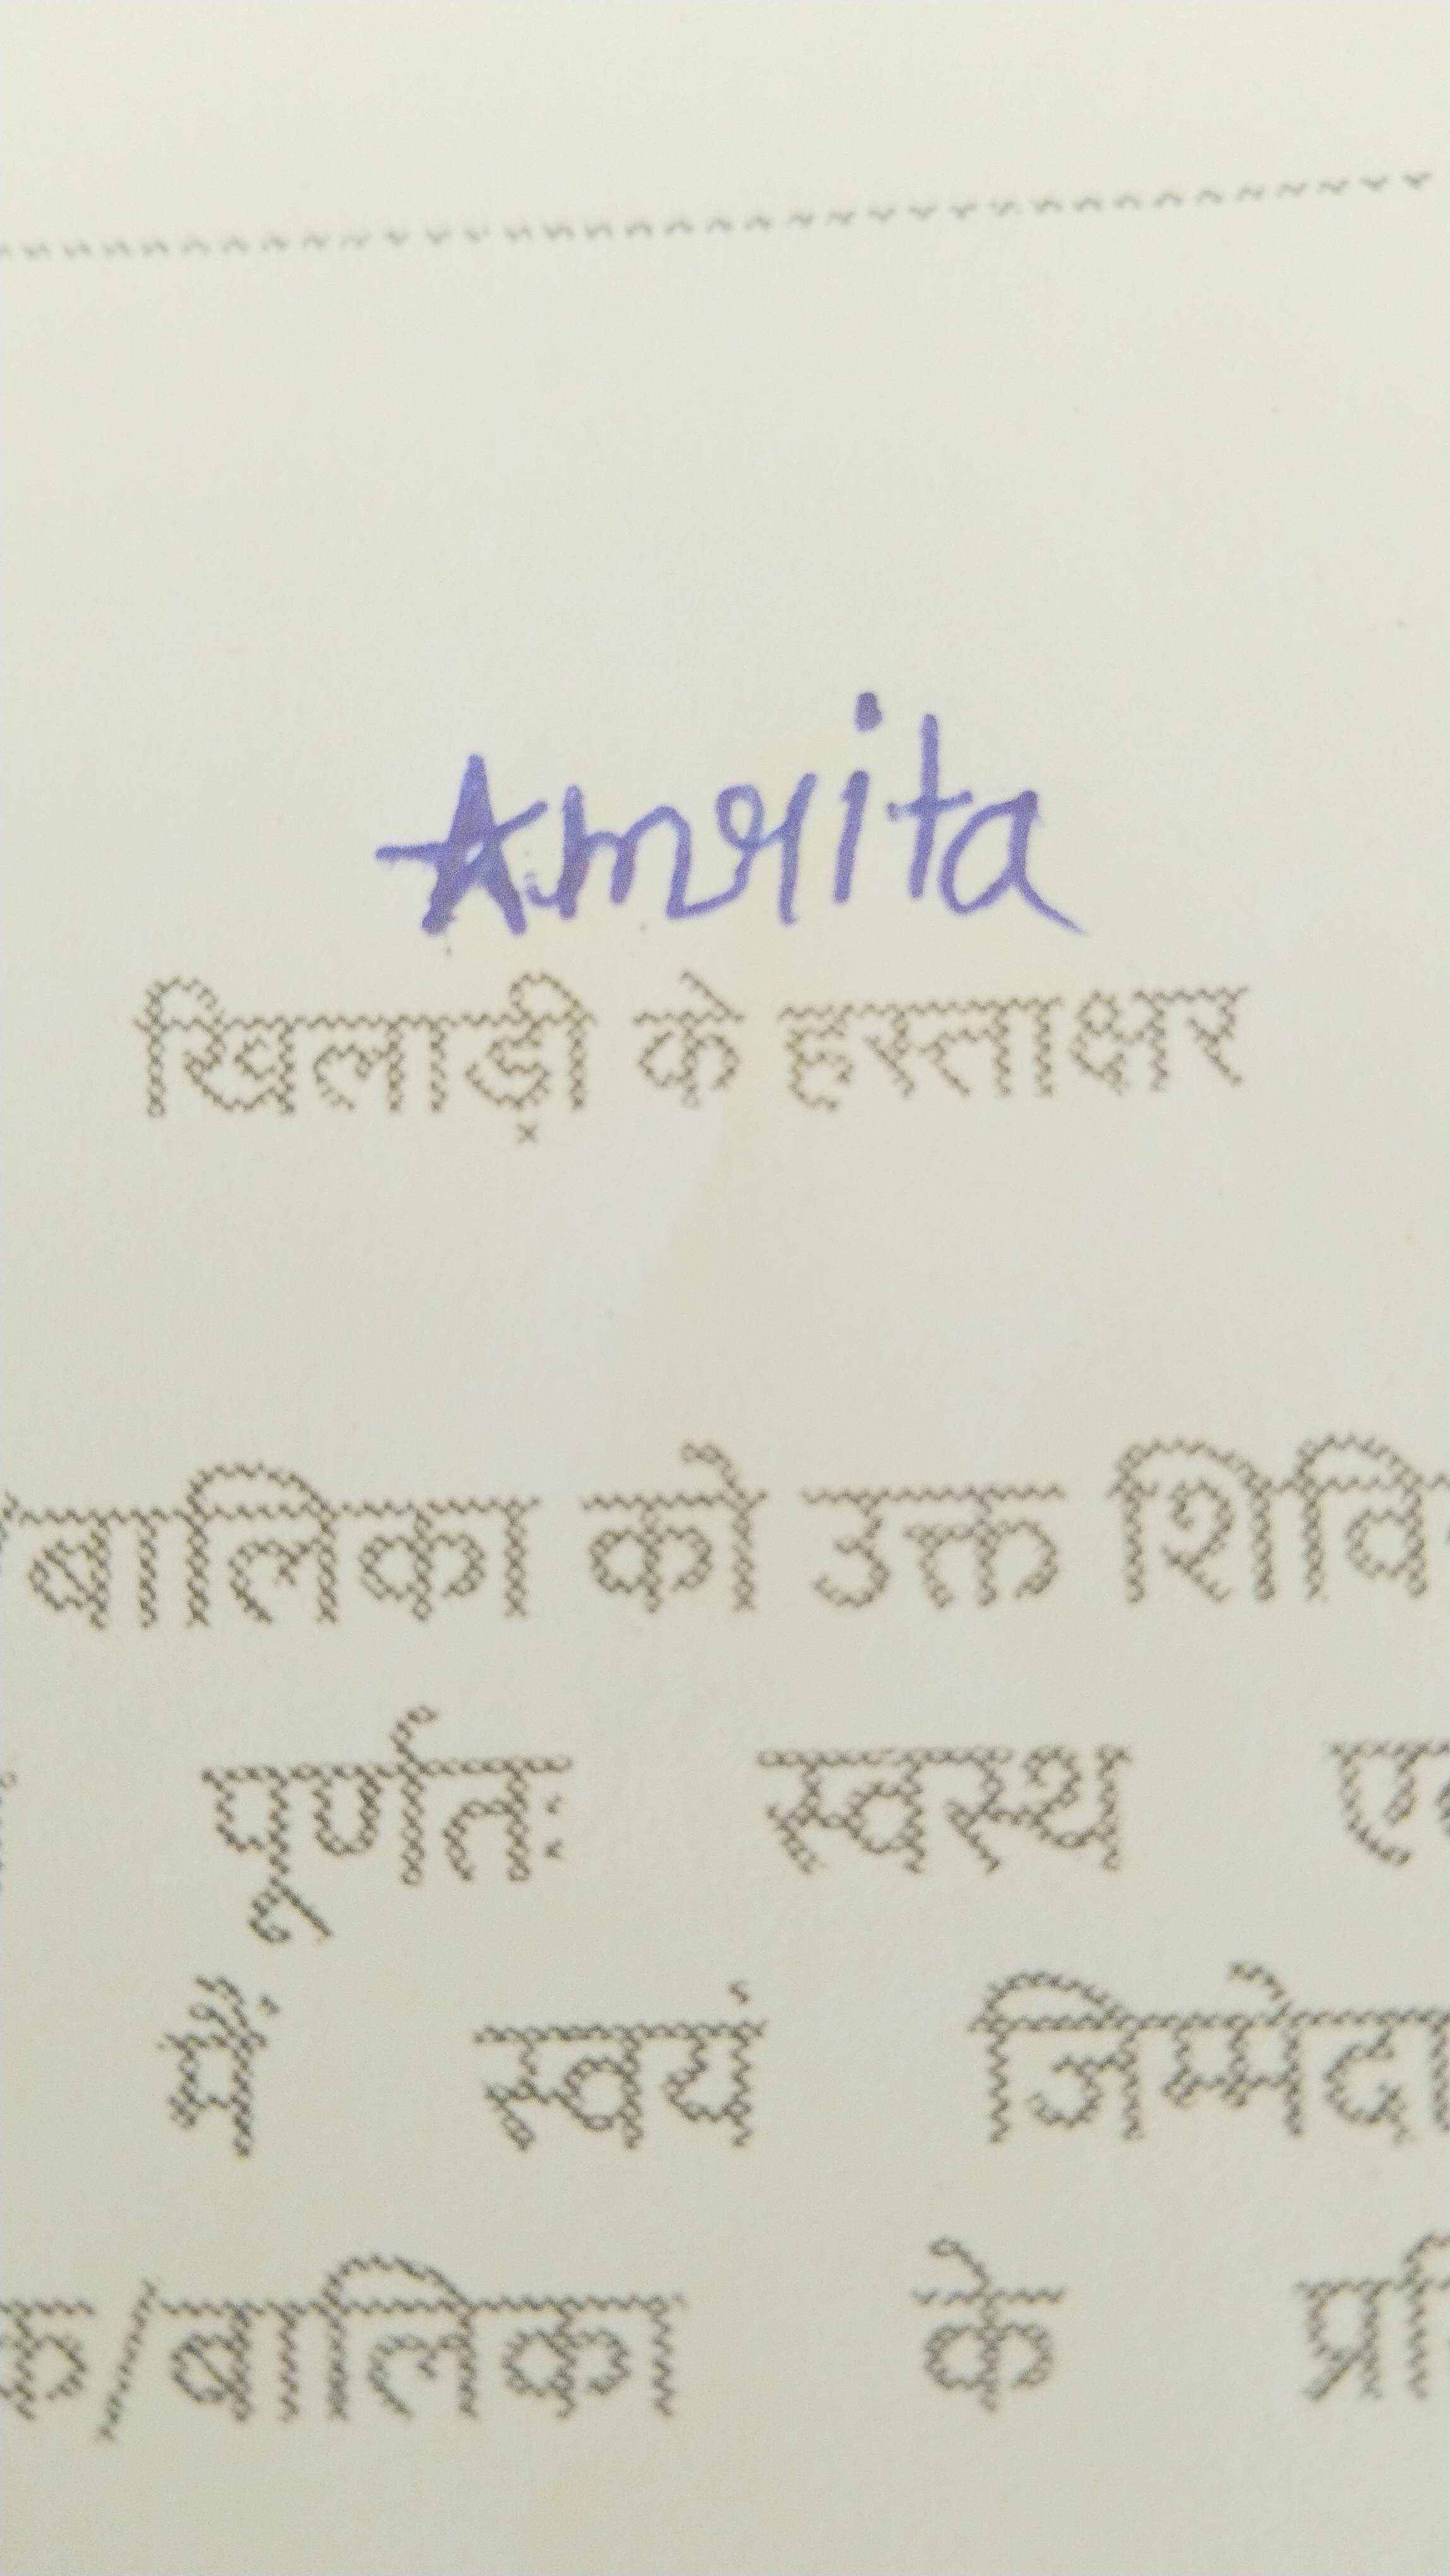 Amrita
खिलाड़ी के हस्ताक्षर
बालिका को उक्त शिवि
पूर्णतः स्वस्थ
मैं स्वयं जिम्मेदा
क/बालिका के प्रति